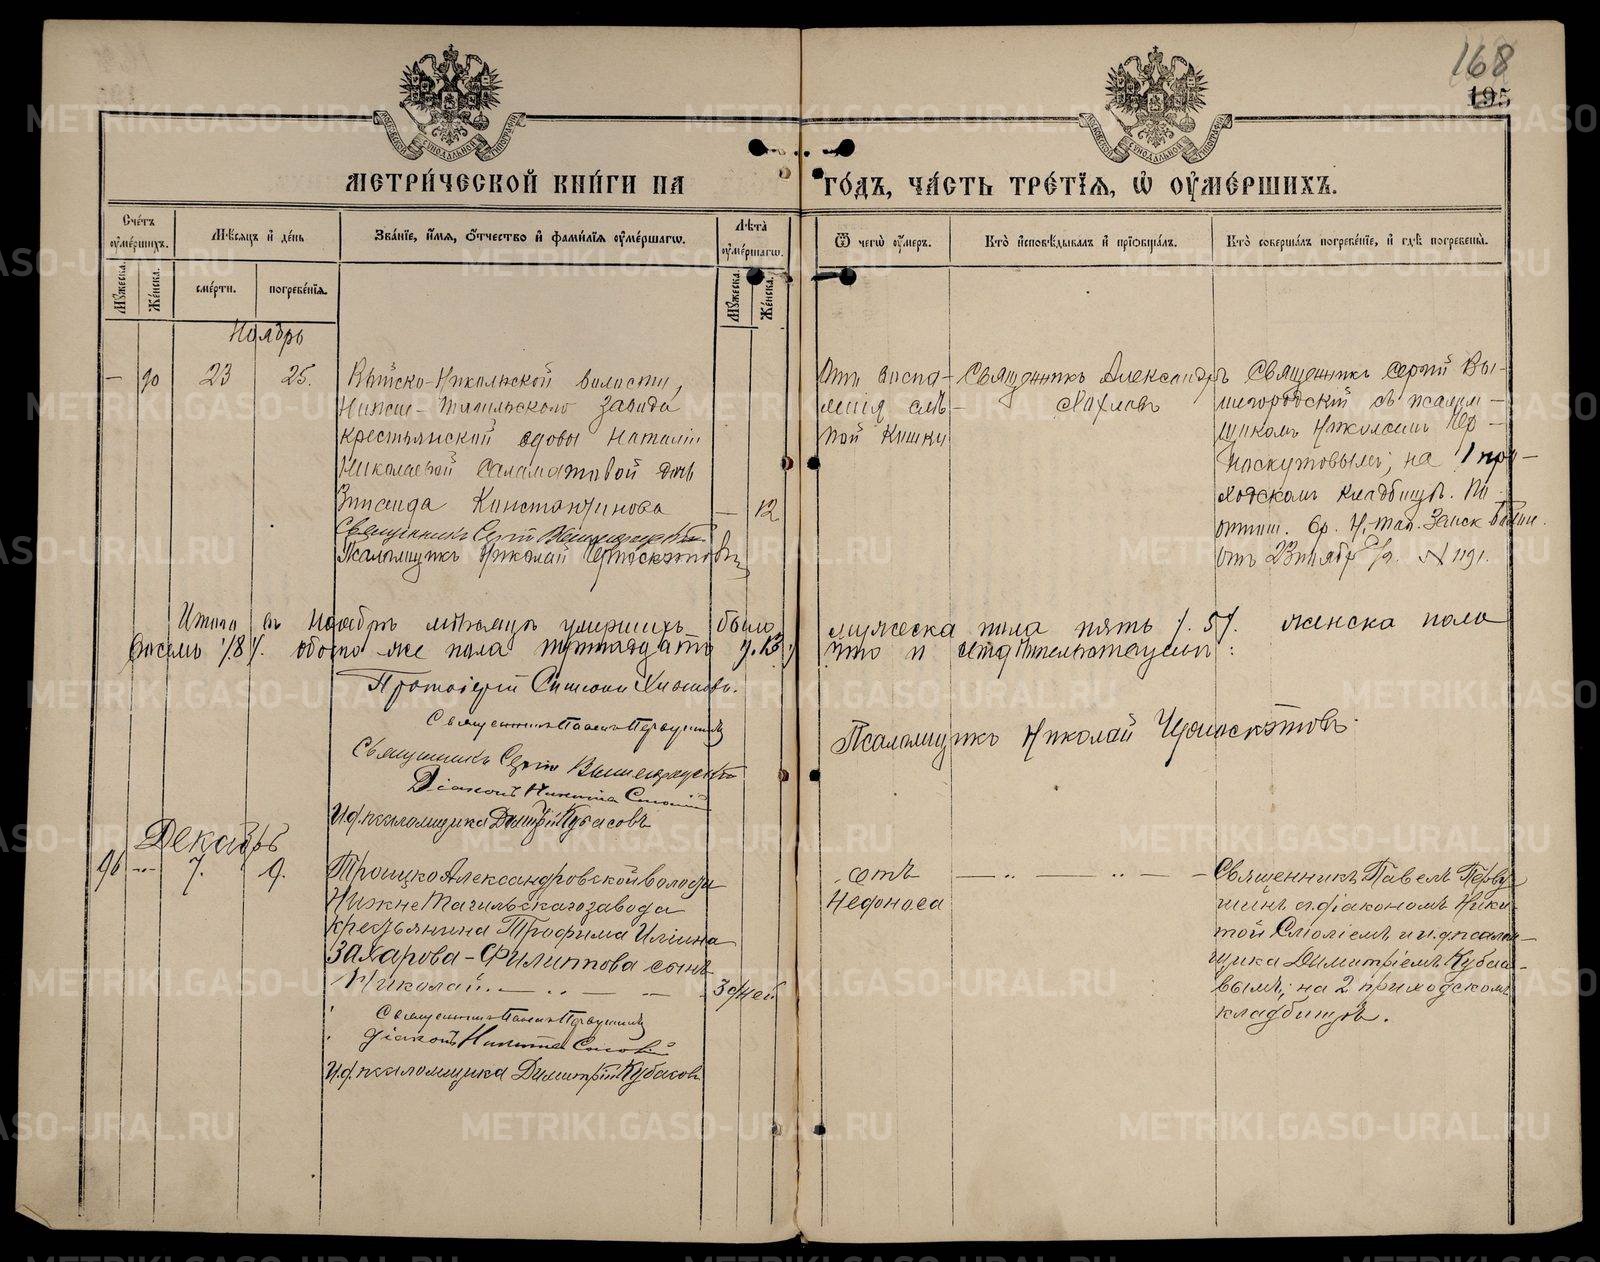 168
195
МЕТРИ́ЧЕСКОЙ КНИ́ГИ НА
ГО́ДЪ, ЧА́СТЬ ТРЕ́ТІѦ, Ѡ҆ ОУ҆МЕ́РШИХЪ.
Сче́тъ оу҆ме́ршихъ.
Мꙋ́жеска.
Же́нска.
Мѣ́сѧцъ и҆ де́нь
сме́рти.
погребе́нїѧ.
Зва́нїе, и҆́мѧ, ѻ҆́тчество и҆ фами́лїѧ оу҆ме́ршагѡ.
Лѣ́та оу҆ме́ршагѡ.
Мꙋ́жеска.
Же́нска.
Ѿ чегѡ̀ оу҆́меръ.
Кто̀ и҆сповѣ́дывалъ и҆ прїѡбща́лъ.
Кто̀ соверша́лъ погребе́нїе, и҆ гдѣ̀ погребены̀.
Ноябрь
— 90 23 25.
Выйско-Никольской волости,
Нижне-Тагильскаго завода
крестьянской вдовы Наталіи
Николаевой Саламатовой дочь
Зинаида Константинова — 12
Священникъ Сергій
Псаломщикъ Николай
Отъ воспа-
ленія слѣ-
пой кишки
Священникъ Александръ
Священникъ Сергій Вы-
шегородскій съ псалом-
щикомъ Николаемъ Чер-
носкутовымъ; на 1 при-
ходскомъ кладбищѣ. По
отнош. Н. Таг. Земск. Больн.
отъ 23 ноября с/г. № 1191.
Итого въ Ноябрѣ мѣсяцѣ умершихъ было
мужеска пола пять /.5/. женска пола
восемь /.8/. обоего же пола тринадцать /.13./
что и свидѣтельствуемъ:
Протоіерей
Священникъ Павелъ Первушинъ
Священникъ Сергій Вышегородскій
Діаконъ Никита Смолій
И.д. псаломщика Димитрій Кубасовъ
Псаломщикъ Николай Черноскутовъ.
Декабрь
96 — 7. 9.
ТроицкоАлександровской волости
НижнеТагильскаго завода
крестьянина Трофима Иліина
Захарова-Филиппова сынъ
Николай. 3 дней
Священникъ Павелъ Первушинъ
Діаконъ Никита Смолій
И.д. псаломщика Димитрій Кубасовъ
отъ
Недоноса
Священникъ Павелъ Перву-
шинъ с діакономъ Ники-
той Смоліемъ и и.д. псалом-
щика Димитріемъ Кубасо-
вымъ; на 2 приходскомъ
кладбищѣ.
METRIKI.GASO-URAL.RU